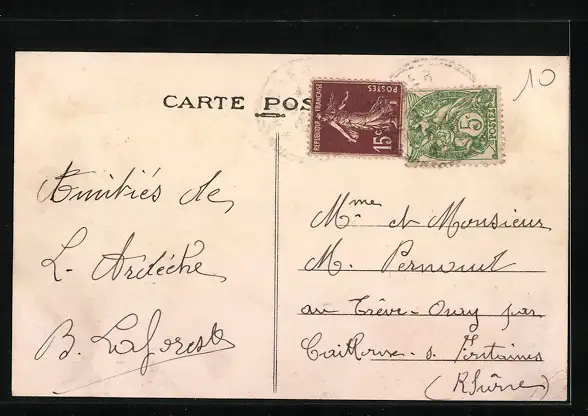 10
CARTE POS
REPUBLIQUE FRANÇAISE
POSTES
15c
5
POSTES
Amitiés de
L'Ardèche
B. Laforest
Mme et Monsieur
M. Pernout
au Trève-Ouay par
Cailloux-s-Fontaines
(Rhône)